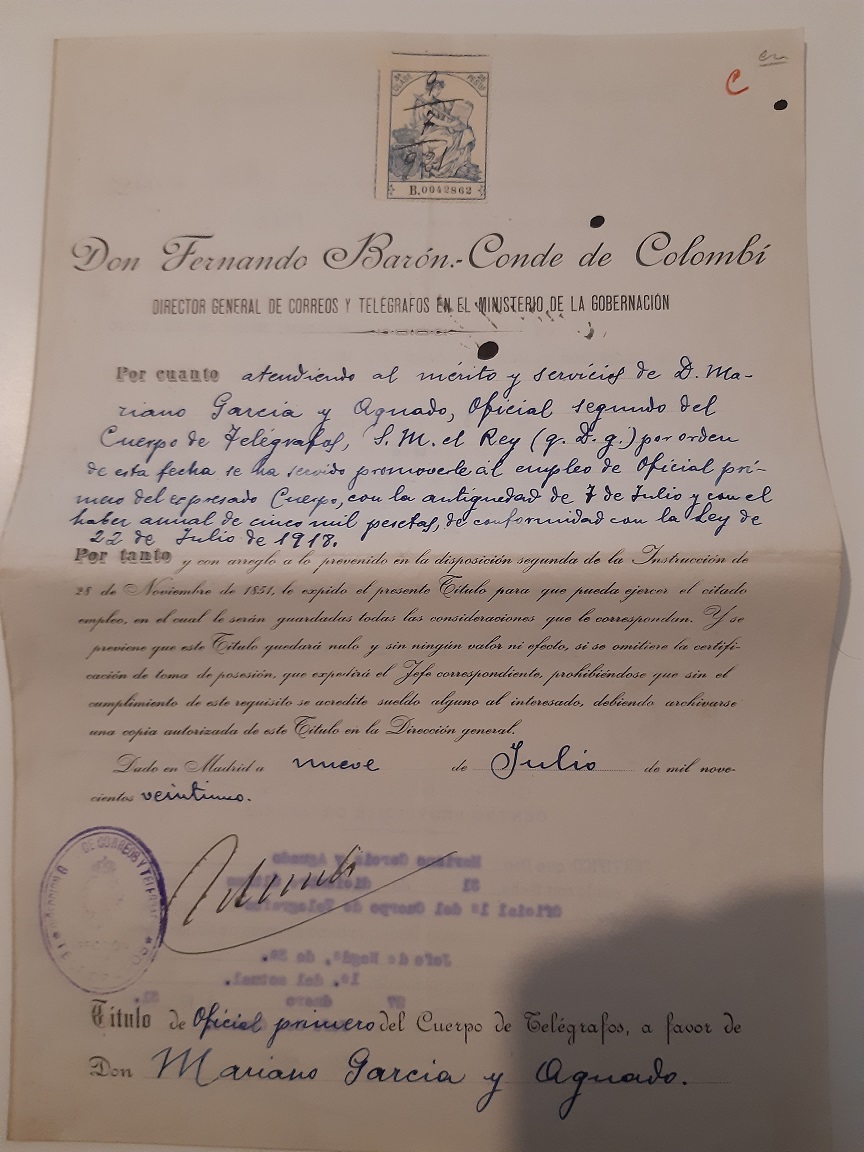 en
C
CLASE
PESET
B.0042862
Don Fernando Barón.-Conde de Colombí
DIRECTOR GENERAL DE CORREOS Y TELÉGRAFOS EN EL MINISTERIO DE LA GOBERNACIÓN
Por cuanto atendiendo al mérito y servicios de D. Ma-
riano Garcia y Aguado, Oficial segundo del
Cuerpo de Telégrafos, S. M. el Rey (q. D. g.) por orden
de esta fecha se ha servido promoverle al empleo de Oficial pri-
mero del expresado Cuerpo, con la antigüedad de 7 de Julio y con el
haber anual de cinco mil pesetas, de conformidad con la Ley de
22 de Julio de 1918.
Por tanto y con arreglo a lo prevenido en la disposición segunda de la Instrucción de
28 de Noviembre de 1851, le expido el presente Título para que pueda ejercer el citado
empleo, en el cual le serán guardadas todas las consideraciones que le correspondan. Y se
previene que este Título quedará nulo y sin ningún valor ni efecto, si se omitiere la certifi-
cación de toma de posesión, que expedirá el Jefe correspondiente, prohibiéndose que sin el
cumplimiento de este requisito se acredite sueldo alguno al interesado, debiendo archivarse
una copia autorizada de este Título en la Dirección general.
Dado en Madrid a nueve de Julio de mil nove-
cientos veintiuno.
DE CORREOS Y TELEGRAFOS
Colombí
Mariano García y Aguado
Oficial 1º del Cuerpo de Telégrafos
Jefe de Negº. de 3ª.
1º. del actual.
27 enero 31.
Título de Oficial primero del Cuerpo de Telégrafos, a favor de
Don Mariano Garcia y Aguado.